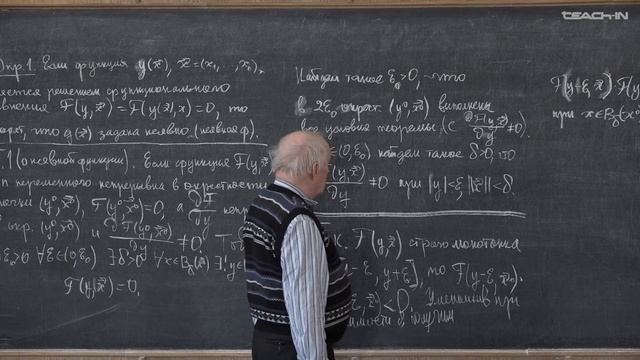 TEACH-IN
Опр.1. Если функция y(x⃗), x⃗=(x₁,...,xₙ),
яется решением функционального
внения F(y,x⃗)=F(y(x⃗),x)=0, то
что y(x⃗) задана неявно. (неявная ф).
Т.1 (о неявной функции). Если функция F(y,x⃗)
переменного непрерывна в окрестности
точки (y⁰,x⃗⁰), F(y⁰,x⃗⁰)=0, а ∂F/∂y
окр. (y⁰,x⃗⁰) и ∂F(y⁰,x⃗⁰)/∂y ≠0. То
∀ε∈(0,ε₀) ∃δ>0 ∀x∈B_δ(x⃗⁰) ∃! y∈
F(y,x⃗)=0.
Найдем такое ε₀>0, что
в 2ε₀ окрест. (y⁰,x⃗⁰) выполнены
все условия теоремы (с ∂F(y,x⃗)/∂y ≠0).
∈(0,ε₀) найдем такое δ>0, что
∂y ≠0 при |y|<ε, ||x⃗||<δ.
к. F(y,x⃗) строго монотонна
-ε, y+ε], то F(y-ε,x⃗₀)·
<0. Уменьшив при
F(y+ε,x⃗) F(y
при x∈B_δ(x⁰